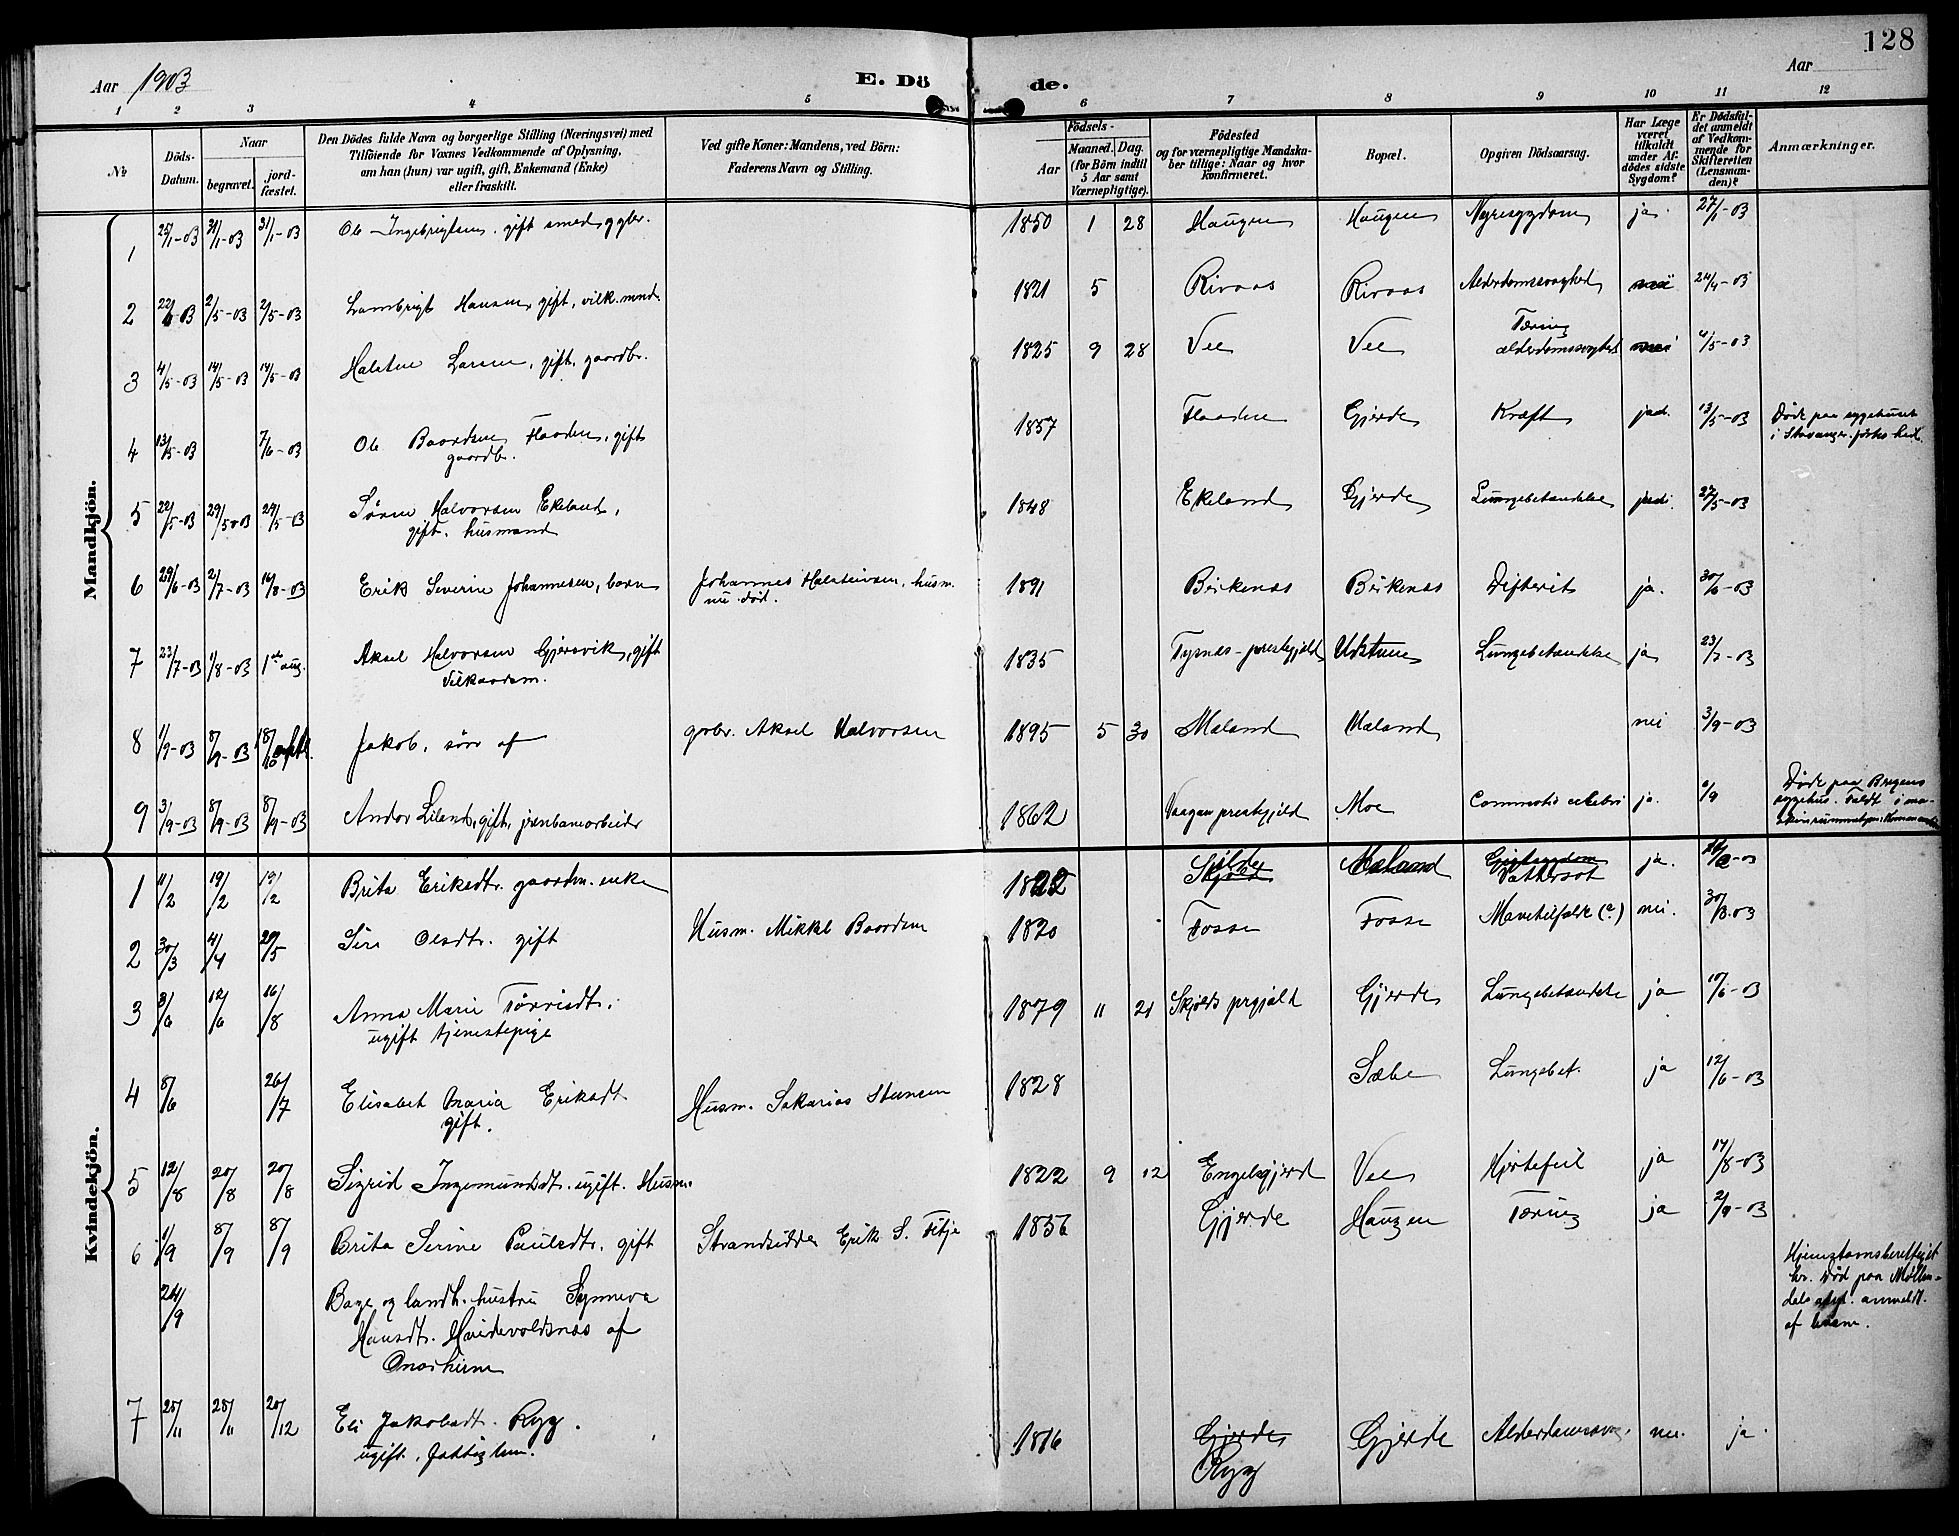 128
Aar 1903
E. Dö
de.
Aar
1 2 3 4 5 6 7 8 9 10 11 12
№
Döds-Datum.
Naar
begravet.
jordfæstet.
Den Dödes fulde Navn og borgerlige Stilling (Næringsvei) med
Tilföiende for Voxnes Vedkommende af Oplysning,
om han (hun) var ugift, gift, Enkemand (Enke)
eller fraskilt.
Ved gifte Koner: Mandens, ved Börn:
Faderens Navn og Stilling.
Födsels-
Aar
Maaned. Dag.
(for Börn indtil
5 Aar samt
Værnepligtige).
Födested
og for værnepligtige Mandskaber tillige: Naar og hvor
konfirmeret.
Bopæl.
Opgiven Dödsaarsag.
Har Læge
været
tilkaldt
under Afdödes sidste
Sygdom?
Er Dödsfaldet anmeldt
af Vedkommende for
Skifteretten
(Lensmanden)?
Anmærkninger.
Mandkjön.
1 25/1-03 31/1-03 31/1-03 Ole Ingebrigtsen gift smed, gbr. 1850 1 28 Haugen Haugen Nyresygdom ja. 27/1-03
2 2/5-03 2/5-03 Lambrigt Hansen gift, vilk.mnd. 1821 5 Rivaas Rivaas Alderdomssvaghed 24/4-03
3 4/5-03 14/5-03 14/5-03 Halsten Larsen, gift, gaardbr. 1825 9 28 Vee Vee Tæring
alderdomssvaghet 4/5-03
4 13/5-03 7/6-03 Ole Baardsen Flaaden, gift
gaardb. 1857 Flaaden Gjerde Kræft 13/5-03 Död paa sygehuset
i Stavanger
5 22/5-03 29/5-03 29/5-03 Søren Halvorsen Ekeland,
gift. husmand 1848 Ekeland Gjerde Lungebetændelse 27/5-03
6 29/6-03 2/7-03 16/8-03 Erik Severin Johannesen, barn Johannes Halsteinsen, husm.
nu död. 1891 Birkenes Birkenes Difterit ja. 30/6-03
7 23/7-03 1/8-03 1ste aug. Aksel Halvorsen Gjersvik, gift
Vilkaarsm. 1835 Tysnes prestegjeld Udstuen Lungebetændelse ja 23/7-03
8 1/9-03 8/9-03 Jakob, sönn af gbr. Aksel Halvorsen 1895 5 30 Maland Maland nei 3/9-03
9 3/9-03 8/9-03 8/9-03 Andor Liland, gift, jernbanearbeider 1862 Vaagan prestegjeld Moe Commotio cerebri ja. Döde paa Bergens
sygehus. Faldt i
Kvindekjön.
1 11/2 19/2 19/2 Brita Eriksdtr. gaardm. enke 1822 Maland Gigtsygdom
Vattersot ja.
2 30/3 4/4 29/5 Siri Olsdtr. gift Husm. Mikkel Baardsen 1820 Fosse Fosse Mavetilfælde (?) nei. 30/3-03
3 3/6 12/6 16/8 Anna Marie Törrisdt.
ugift tjenestepige 1879 11 21 Skjolds prgjæld Gjerde Lungebetændelse ja 10/6-03
4 8/6 26/7 Elisabet Maria Eriksdt
gift. Husm. Sakarias Stensen 1828 Sæbø Lungebet. ja 12/6-03
5 12/8 20/8 20/8 Sigrid Ingemundsdt. ugift. Husm. 1822 9 12 Engelsgjerd Vee Hjertefeil ja 17/8-03
6 1/9 8/9 8/9 Brita Serine Paulsdtr. gift Strandsidder Erik S. Fitje 1856 Gjerde Haugen Tæring ja 2/9-03
24/9 Bage og landh. hustru Synneva
Hansdt. Haidevoldsnes af Hjemstamsberettiget
her. Död paa Møllendals asyl. anmeldt
7 25/11 20/12 Eli Jakobsdt. Rygg.
ugift. fattiglem. 1816 Gjerde
Rygg Gjerde Alderdomssvag. nei. ja.